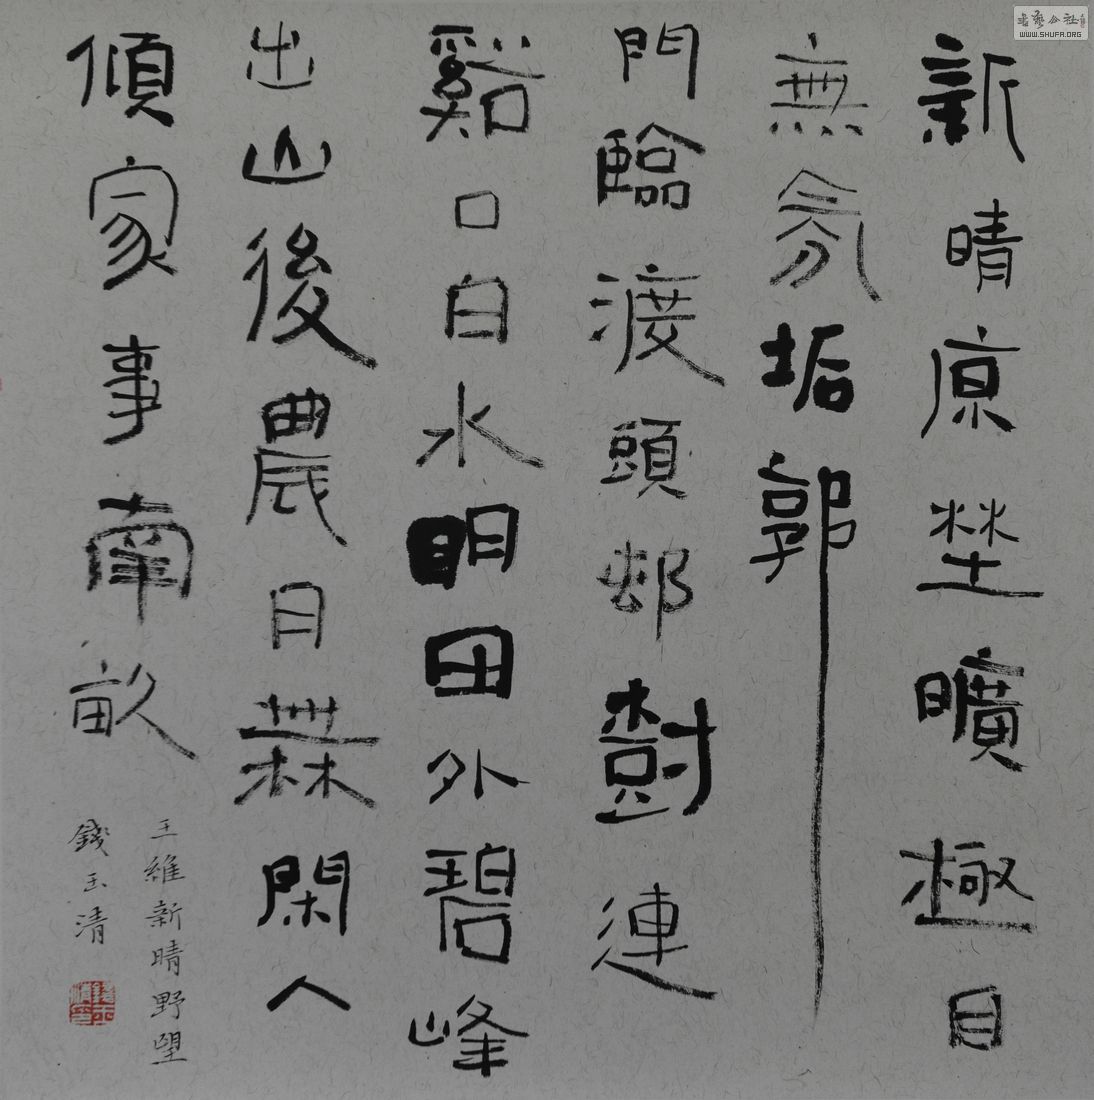 新晴原埜曠極目
無氛垢郭
門臨渡頭邨樹連
谿口白水明田外碧峰
出山後農月無閑人
傾家事南畝
王維新晴野望
錢玉清
書藝公社
WWW.SHUFA.ORG